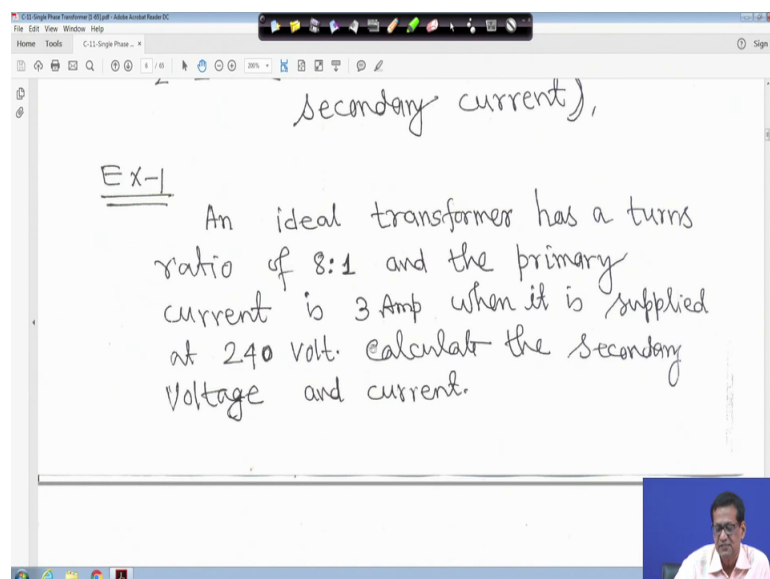 C-11-Single Phase Transformer [1-63].pdf - Adobe Acrobat Reader DC
File Edit View Window Help
Home Tools C-11-Single Phase ... ×
Sign
6 / 63
200%
secondary current),
EX-1
An ideal transformer has a turns
ratio of 8:1 and the primary
current is 3 Amp when it is supplied
at 240 volt. Calculate the secondary
Voltage and current.